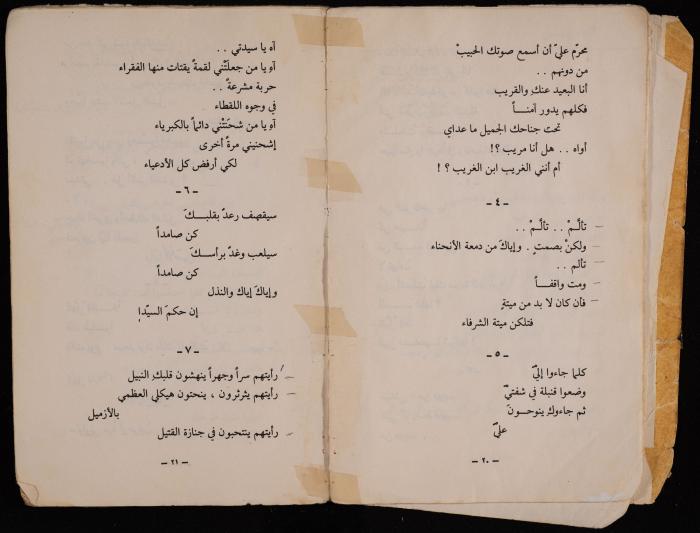 محرّم عليّ أن أسمع صوتك الحبيبْ
من دونهم . .
أنا البعيد عنكِ والقريب
فكلهم يدور آمنــاً
تحت جناحك الجميل ما عداي
أواه . . هل أنا مريب ؟!
أم أنني الغريب ابن الغريب ؟ !
- ٤ -
تألَّـمْ . . تألَّـمْ . .
ولكنْ بصمتٍ . وإياكَ من دمعة الأنحناء
تألم . .
ومت واقفــاً
فأن كان لا بد من ميتةٍ
فتلكن ميتة الشرفاء
- ٥ -
كلما جاءوا إليّ
وضعوا قنبلة في شفتيّ
ثم جاءوكِ ينوحـونَ
عليّ
- ٢٠ -
آه يا سيدتي . .
آهِ يا من جعلتْني لقمةً يقتات منها الفقراء
حربة مشرعةً . .
في وجوه اللقطاء
آهِ يا من شحَنَتْني دائماً بالكبرياء
إشحنيني مرةً أخرى
لكي أرفض كل الأدعياء
- ٦ -
سيقصف رعدٌ بقلبـــكَ
كن صامداً
سيلعب وغدٌ برأســكَ
كن صامداً
وإياكَ إياك والنذل
إن حكمَ السيّدا
- ٧ -
رأيتهم سراً وجهراً ينهشون قلبكِ النبيل
رأيتهم يثرثرون ، ينحتون هيكلي العظمي
بالأزميل
رأيتهم ينتحبون في جنازة القتيل
- ٢١ -